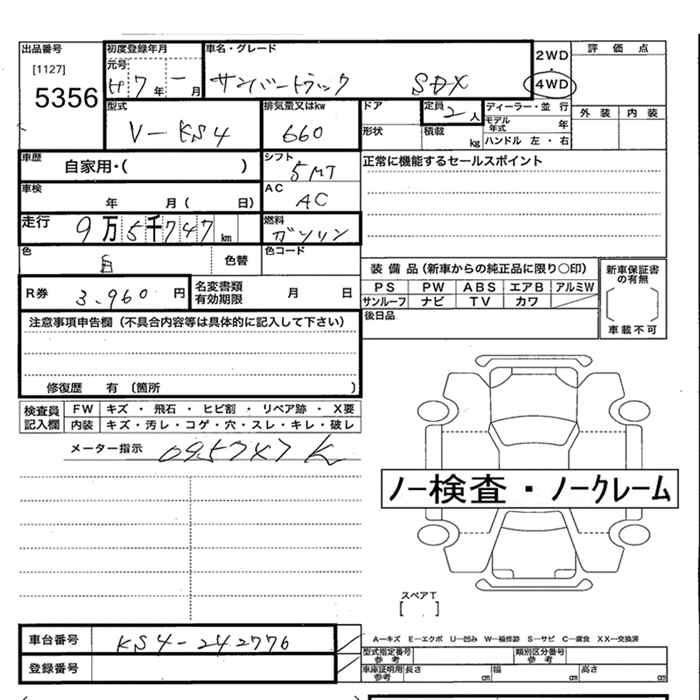 出品番号 初度登録年月 車名・グレード 2WD 評価点
[1127] 元号
5356 H7年一月 サンバートラック SDX 4WD
型式 排気量又はkw ドア 定員 2人 ディーラー・並行 外装 内装
V-KS4 660 形状 積載 kg モデル年式 年
ハンドル 左・右
車歴 自家用・( ) シフト 5MT 正常に機能するセールスポイント
車検 年 月( 日) AC AC
走行 9万5千747km 燃料 ガソリン
色 白 色替 色コード
装備品(新車からの純正品に限り○印) 新車保証書の有無
R券 3.960円 名変書類有効期限 月 日 PS PW ABS エアB アルミW
サンルーフ ナビ TV カワ
車載不可
注意事項申告欄(不具合内容等は具体的に記入して下さい) 後日品
修復歴 有(箇所 )
検査員記入欄 FW キズ・飛石・ヒビ割・リペア跡・X要
内装 キズ・汚レ・コゲ・穴・スレ・キレ・破レ
メーター指示 095747K
ノー検査・ノークレーム
スペアT
[ ]
車台番号 KS4-242776 A―キズ E―エクボ U―凹み W―補修跡 S―サビ C―腐食 XX―交換済
型式指定番号参考 類別区分番号参考
登録番号 車庫証明用参考 長さ cm 幅 cm 高さ cm